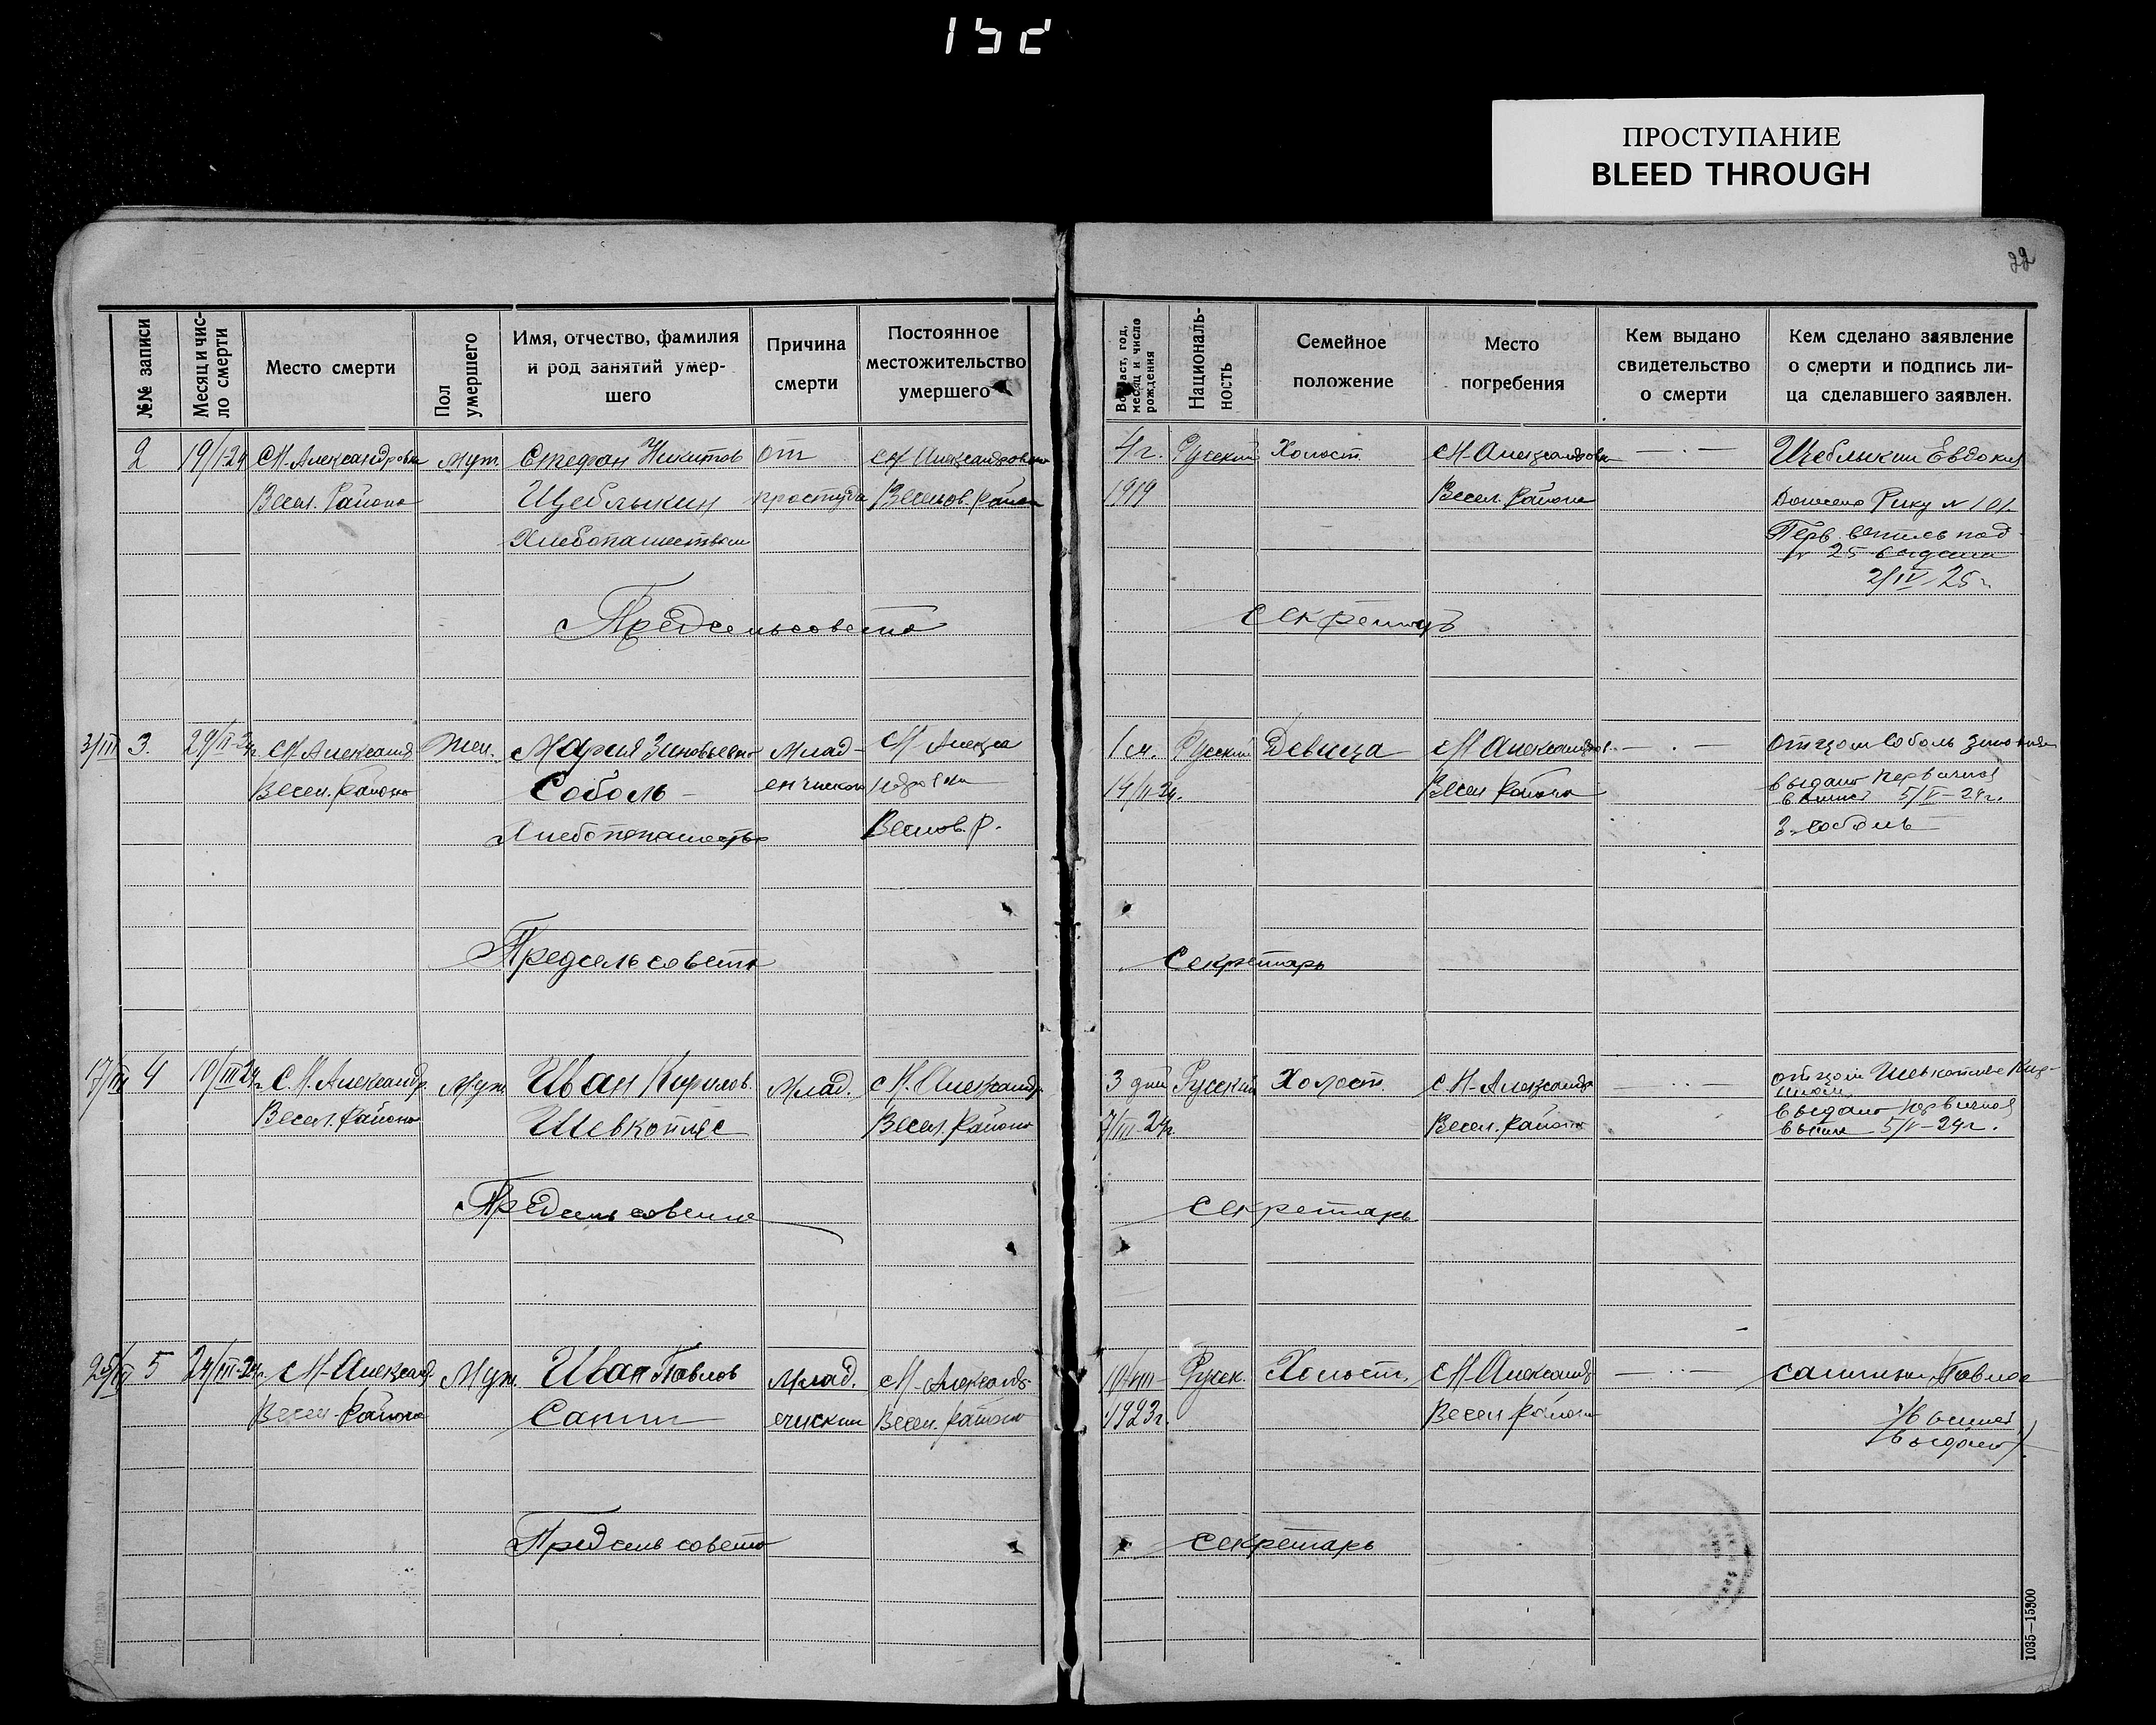 152
ПРОСТУПАНИЕ
BLEED THROUGH
22
№№ записи
Месяц и чис-
ло смерти
Место смерти
Пол
умершего
Имя, отчество, фамилия
и род занятий умер-
шего
Причина
смерти
Постоянное
местожительство
умершего
Возраст, год,
месяц и число
рождения
Националь-
ность
Семейное
положение
Место
погребения
Кем выдано
свидетельство
о смерти
Кем сделано заявление
о смерти и подпись ли-
ца сделавшего заявлен.
2
19/I-24
С.Н. Александровка
Весел. Района
Муж.
Стефан Никитов
Щеблыкин
Хлебопашеством
от
простуда
С.Н. Александровка
Веселов. Район
4 г.
1919
Русский
Холост.
С.Н. Александровка
Весел. Района
— . —
Щеблыкин Евдоким
Донесено Рику № 101
Перв. выпись под
№ 25 выдана
2/IV 25 г.
Предсельсовета
Секретарь
3/III
3.
29/II-24г.
С.Н. Александ
Весел. Района
Жен.
Мария Зиновьевна
Соболь
Хлебопашество
Млад-
енческой
С.Н. Алекса
ндровка
Веселов. Р.
1 м.
14/II-24.
Русский
Девица
С.Н. Александров.
Весел Района
— . —
Отцом Соболь Зиновий
выдано первичная
выпись 5/V-24г.
З. Соболь
Предсельсовета
Секретарь
17/III
4
10/III 24г.
С.Н. Александр.
Весел. Района
Муж
Иван Кирилов.
Шевкопляс
Млад.
С.Н. Александр.
Весел. Района
3 дня
7/III-24г.
Русский
Холост.
С.Н. Александр
Весел. Района
— . —
отцом Шевкопляс Кир-
илом
выдано первичная
выпись 5/V-24г.
Предсельсовета
Секретарь
25/III
5
24/III-24г.
С.Н. Александ.
Весел. Района
Муж.
Иван Павлов
Сапин
Млад.
енческий
С.Н. Александр.
Весел. Района
1923г.
Русск.
Холост.
С.Н. Александ
Весел Района
— . —
Павлов
/выпись
выдано/
Предсельсовета
Секретарь
1035—15300